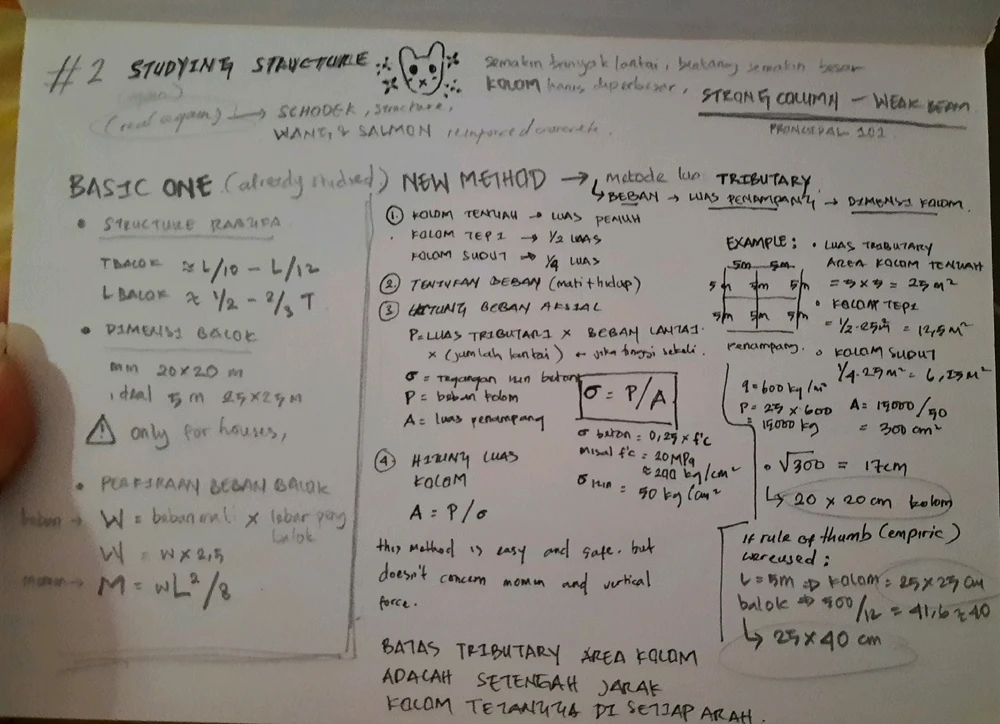 #2 STUDYING STRUCTURE
(read again) → SCHODEK, structure,
WANG & SALMON reinforced concrete.
semakin banyak lantai, bentang semakin besar
KOLOM harus diperbesar,
STRONG COLUMN - WEAK BEAM
PRINCIPAL 101
BASIC ONE (already studied)
• STRUCTURE
T BALOK ≈ L/10 - L/12
L BALOK ≈ 1/2 - 2/3 T
• DIMENSI BALOK
min 20 x 20 m
ideal 5 m 25 x 25 M
⚠ only for houses,
• PERKIRAAN BEBAN BALOK
beban → W = beban mati x lebar
balok
W = W x 2,5
momen → M = wL²/8
NEW METHOD → metode luas TRIBUTARY
↳ BEBAN → LUAS PENAMPANG → DIMENSI KOLOM.
① KOLOM TENGAH → LUAS PENUH
. KOLOM TEPI → 1/2 LUAS
KOLOM SUDUT → 1/4 LUAS
② TENTUKAN BEBAN (mati + hidup)
③ HITUNG BEBAN AKSIAL
P = LUAS TRIBUTARI x BEBAN LANTAI
x (jumlah lantai) ← jika tinggi sekali.
σ = Tegangan izin beton
P = beban kolom
A = luas penampang
σ = P/A
σ beton = 0,25 x f'c
misal f'c = 20 MPa
≈ 200 kg/cm²
σ izin = 50 kg/cm²
④ HITUNG LUAS
KOLOM
A = P/σ
this method is easy and safe. but
doesn't concern momen and vertical
force.
BATAS TRIBUTARY AREA KOLOM
ADALAH SETENGAH JARAK
KOLOM TETANGGA DI SETIAP ARAH.
EXAMPLE :
5m 5m
5m 5m 5m
5m 5m 5m
Penampang.
• LUAS TRIBUTARY
AREA KOLOM TENGAH
= 5 x 5 = 25 m²
• KOLOM TEPI
= 1/2.25m² = 12,5 M²
• KOLOM SUDUT
1/4.25 m² = 6,25 M²
q = 600 kg/m²
P = 25 x 600
= 15000 kg
A = 15000/50
= 300 cm²
• √300 = 17cm
↳ 20 x 20 cm kolom
If rule of thumb (empiric)
were used :
L = 5m ⇒ kolom = 25 x 25 cm
balok ⇒ 500/12 = 41,6 ≈ 40
↳ 25 x 40 cm